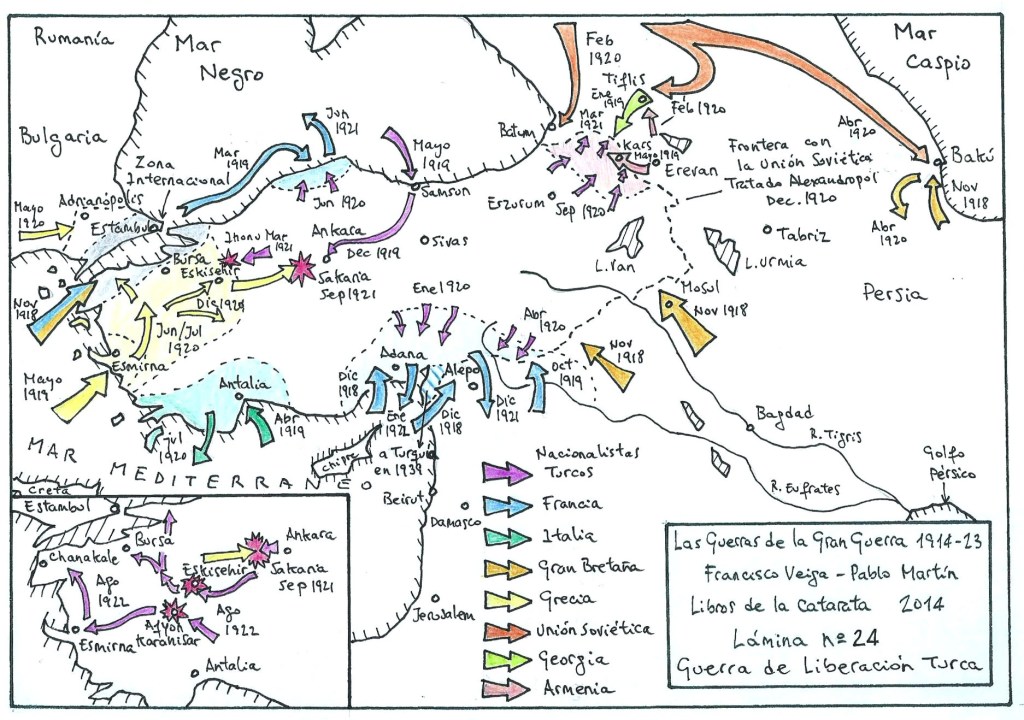 Rumanía
Mar
Negro
Feb
1920
Mar
Caspio
Bulgaria
Jun
1921
Mar
1919
Mayo
1919
Tiflis
Ene
1919
Feb 1920
Batum
Mar
1921
Kars
Mayo 1919
Erevan
Abr
1920
Bakú
Nov
1918
Abr
1920
Frontera con
la Unión Soviética
Tratado Alexandropol
Dec. 1920
Zona
Internacional
Adrianópolis
Mayo
1920
Estambul
Jun 1920
Samsun
Erzurum
Sep 1920
Bursa
Eskisehir
Mar
1921
Ankara
Dec 1919
Sivas
Sakaria
Sep 1921
L. Van
L. Urmia
Tabriz
Persia
Nov
1918
Jun/Jul
1920
Esmirna
Mayo
1919
Ene 1920
Abr
1920
Mosul
Nov 1918
Nov
1918
Adana
Alepo
Antalia
Dic
1918
Oct
1919
Abr
1919
Jul
1920
Dic
1918
Dic
1921
a Turquía
en 1939
Chipre
Bagdad
R. Tigris
R. Eufrates
Golfo
Pérsico
MAR
MEDITERRANEO
Creta
Beirut
Damasco
Jerusalem
Nacionalistas
Turcos
Francia
Italia
Gran Bretaña
Grecia
Unión Soviética
Georgia
Armenia
Estambul
Chanakale
Bursa
Ankara
Eskisehir
Sakaria
Sep 1921
Ago
1922
Afyon
Karahisar
Ago
1922
Esmirna
Antalia
Las Guerras de la Gran Guerra 1914-23
Francisco Veiga - Pablo Martín
Libros de la Catarata 2014
Lámina nº 24
Guerra de Liberación Turca